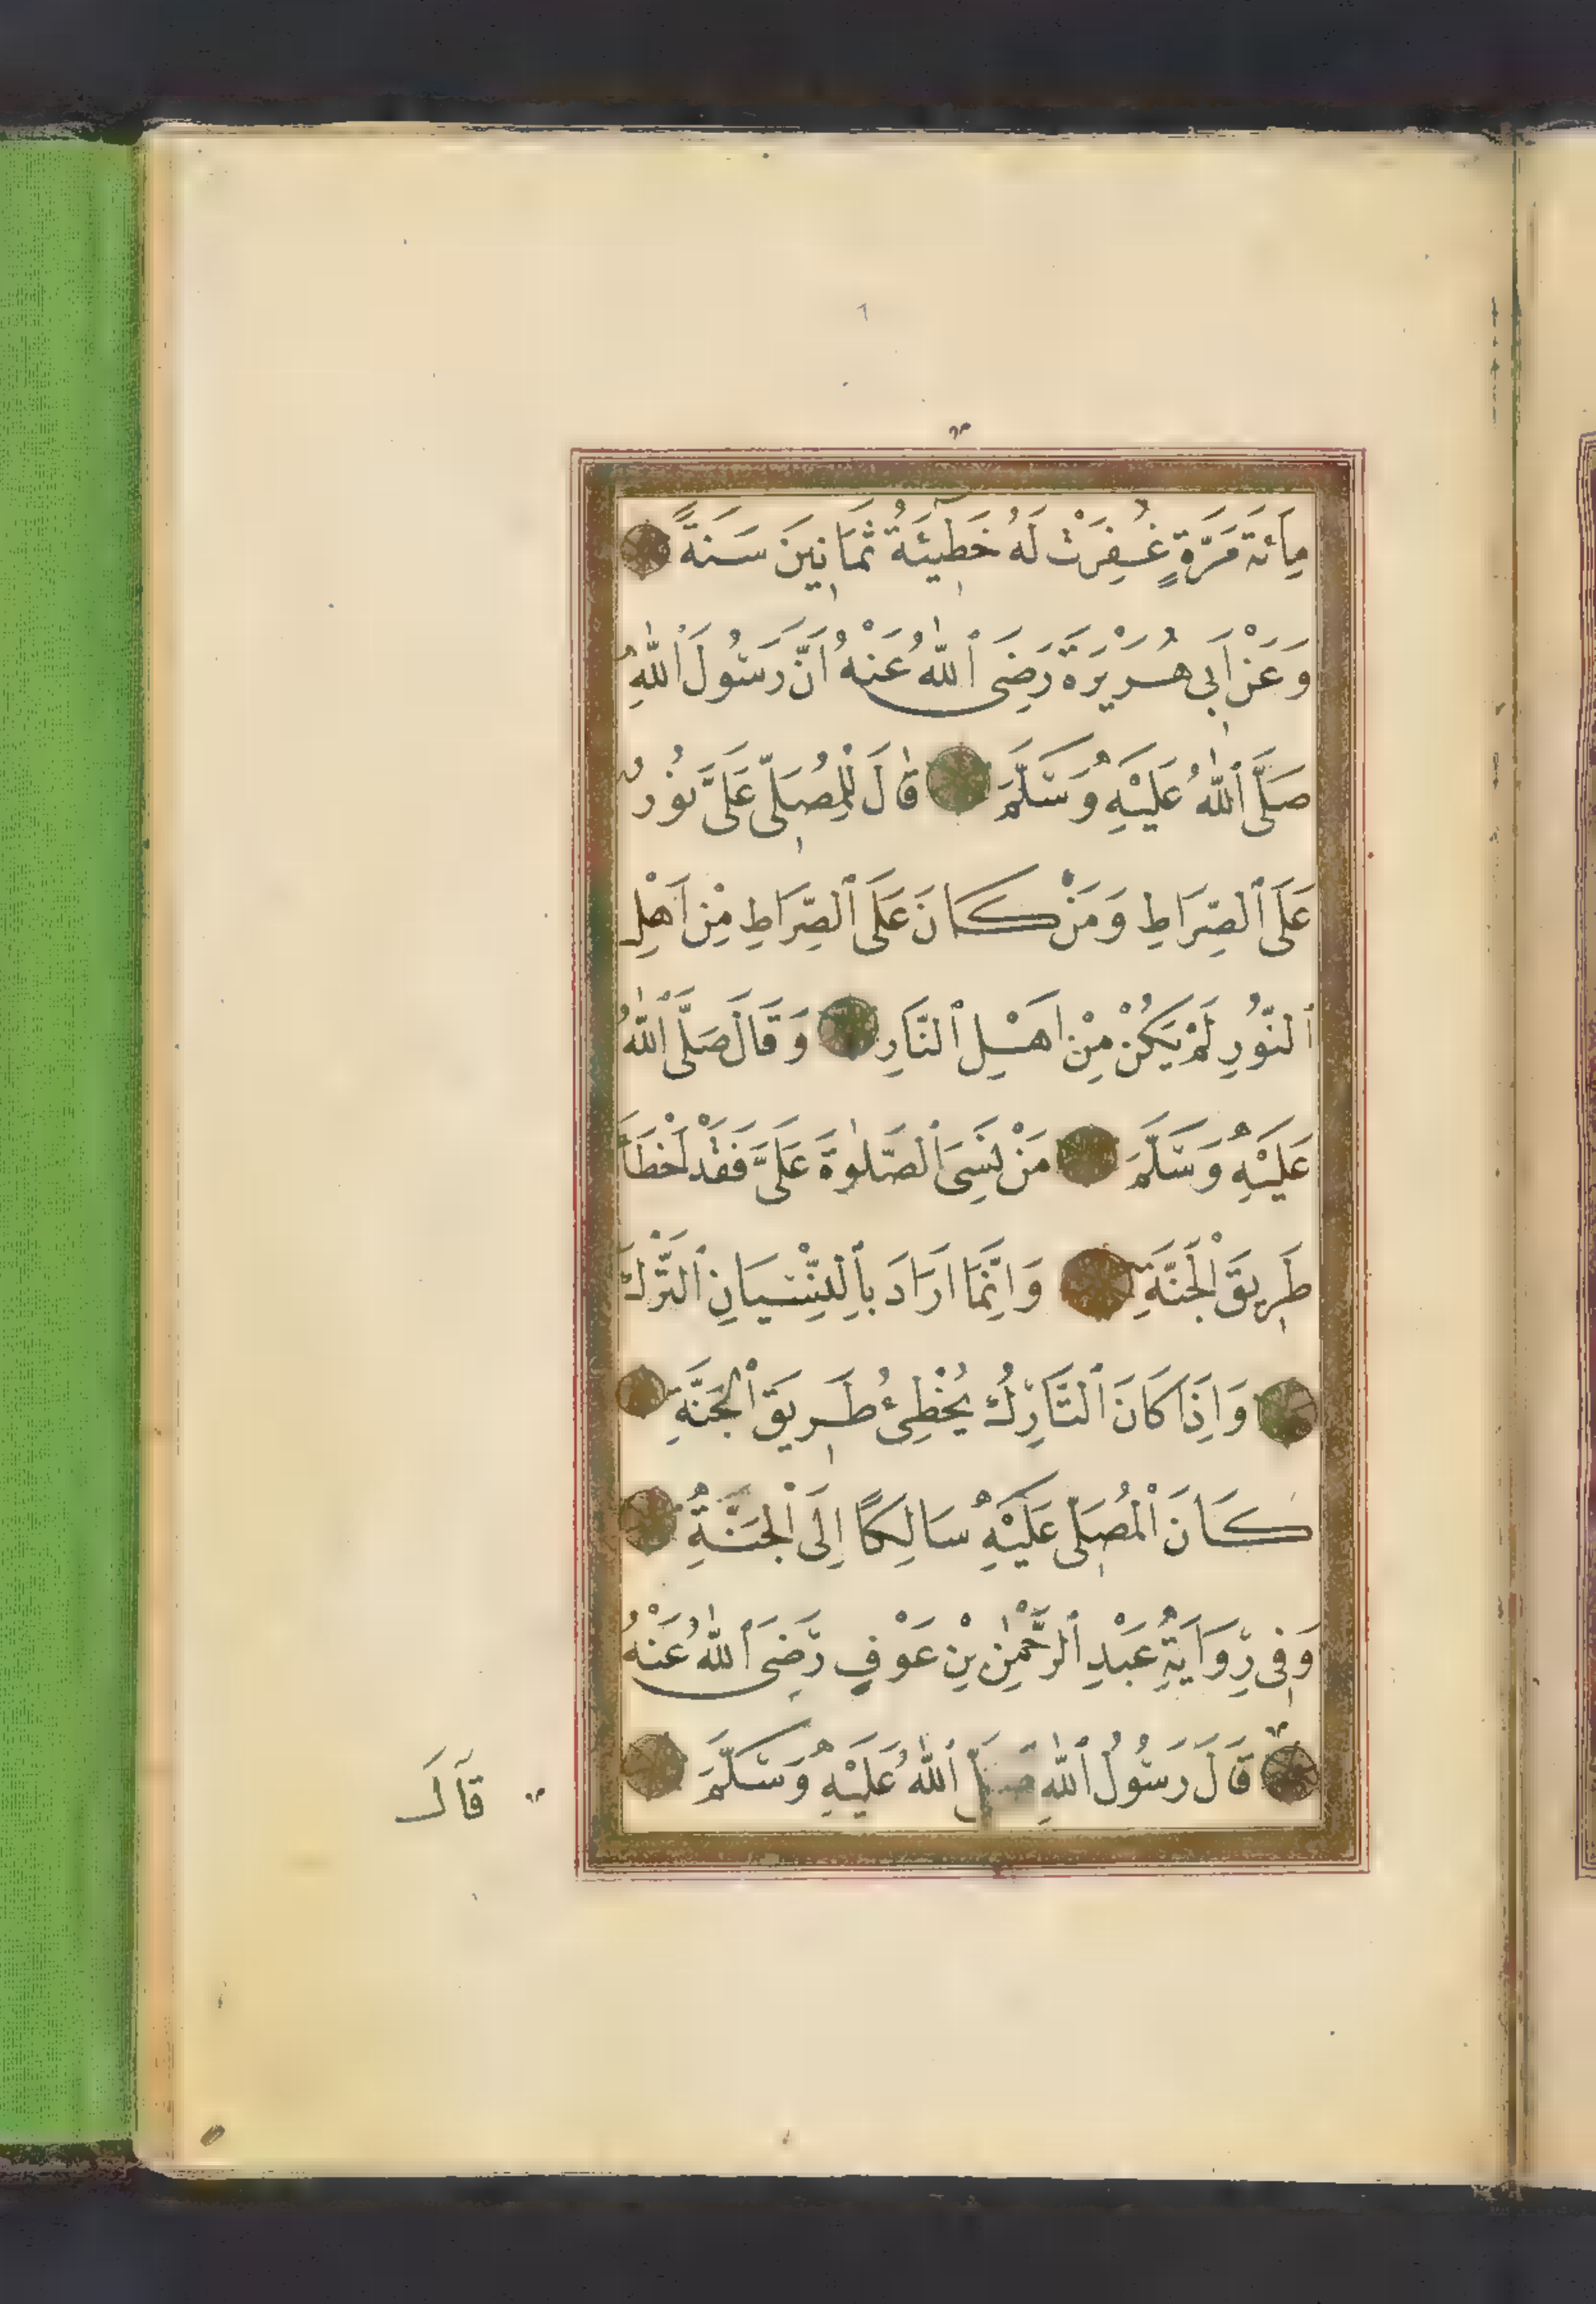 مِأَئَة مَرَّةٍ غُفِرَتْ لَهُ خَطِيٓئَةُ ثَمَانِينَ سَنَةً
وَعَنْ اَبِي هُرَيْرَةَ رَضِيَ ٱللّٰهُ عَنْهُ اَنَّ رَسُولَ ٱللّٰهِ
صَلَّى ٱللّٰهُ عَلَيْهِ وَسَلَّمَ قَالَ لِلْمُصَلِّي عَلَيَّ نُورٌ
عَلَى ٱلصِّرَاطِ وَمَنْ كَانَ عَلَى ٱلصِّرَاطِ مِنْ اَهْلِ
ٱلنُّورِ لَمْ يَكُنْ مِنْ اَهْلِ ٱلنَّارِ وَقَالَ صَلَّى ٱللّٰهُ
عَلَيْهِ وَسَلَّمَ مَنْ نَسِيَ ٱلصَّلٰوةَ عَلَيَّ فَقَدْ اَخْطَأَ
طَرِيقَ ٱلْجَنَّةِ وَاِنَّمَا اَرَادَ بِٱلنِّسْيَانِ ٱلتَّرْكَ
وَاِذَا كَانَ ٱلتَّارِكُ يُخْطِئُ طَرِيقَ ٱلْجَنَّةِ
كَانَ ٱلْمُصَلِّي عَلَيْهِ سَالِكًا اِلَى ٱلْجَنَّةِ
وَفِي رِوَايَةِ عَبْدِ ٱلرَّحْمٰنِ بْنِ عَوْفٍ رَضِيَ ٱللّٰهُ عَنْهُ
قَالَ رَسُولُ ٱللّٰهِ صَلَّى ٱللّٰهُ عَلَيْهِ وَسَلَّمَ
قَالَ